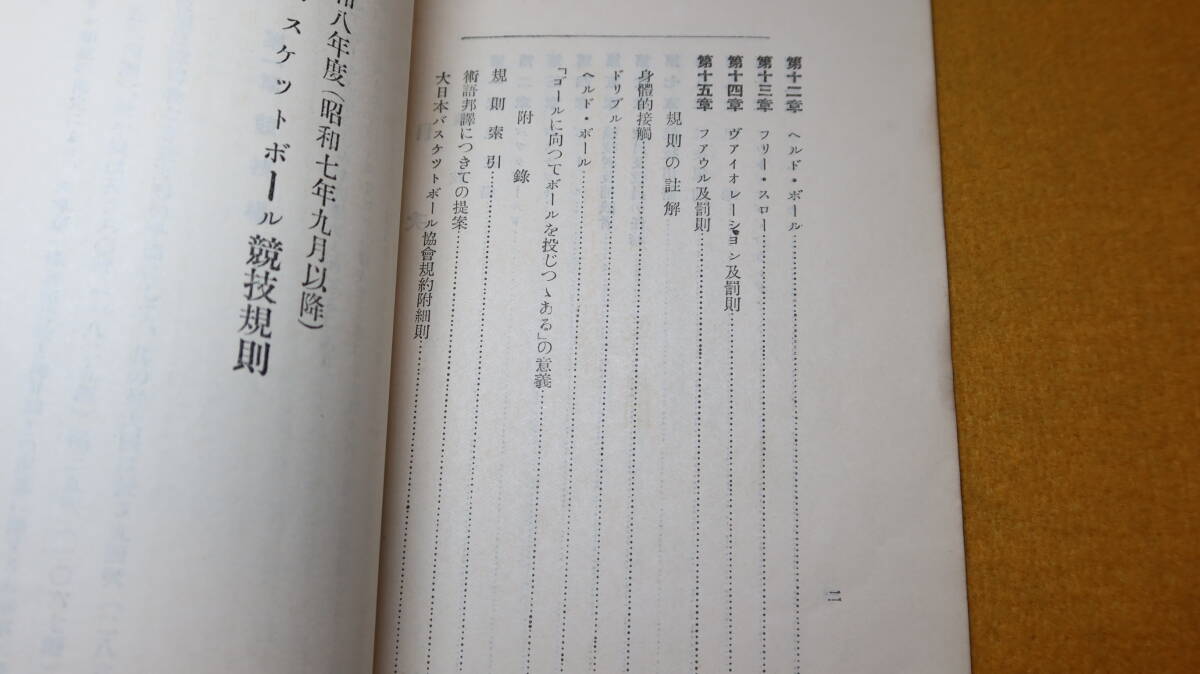 第十二章 ヘルド・ボール
第十三章 フリー・スロー
第十四章 ヴァイオレーション及罰則
第十五章 ファウル及罰則
規則の註解
身體的接觸
ドリブル
ヘルド・ボール
「ゴールに向つてボールを投じつゝある」の意義
附錄
規則索引
術語邦譯につきての提案
大日本バスケットボール協會規約附細則
二
和八年度(昭和七年九月以降)
スケットボール競技規則